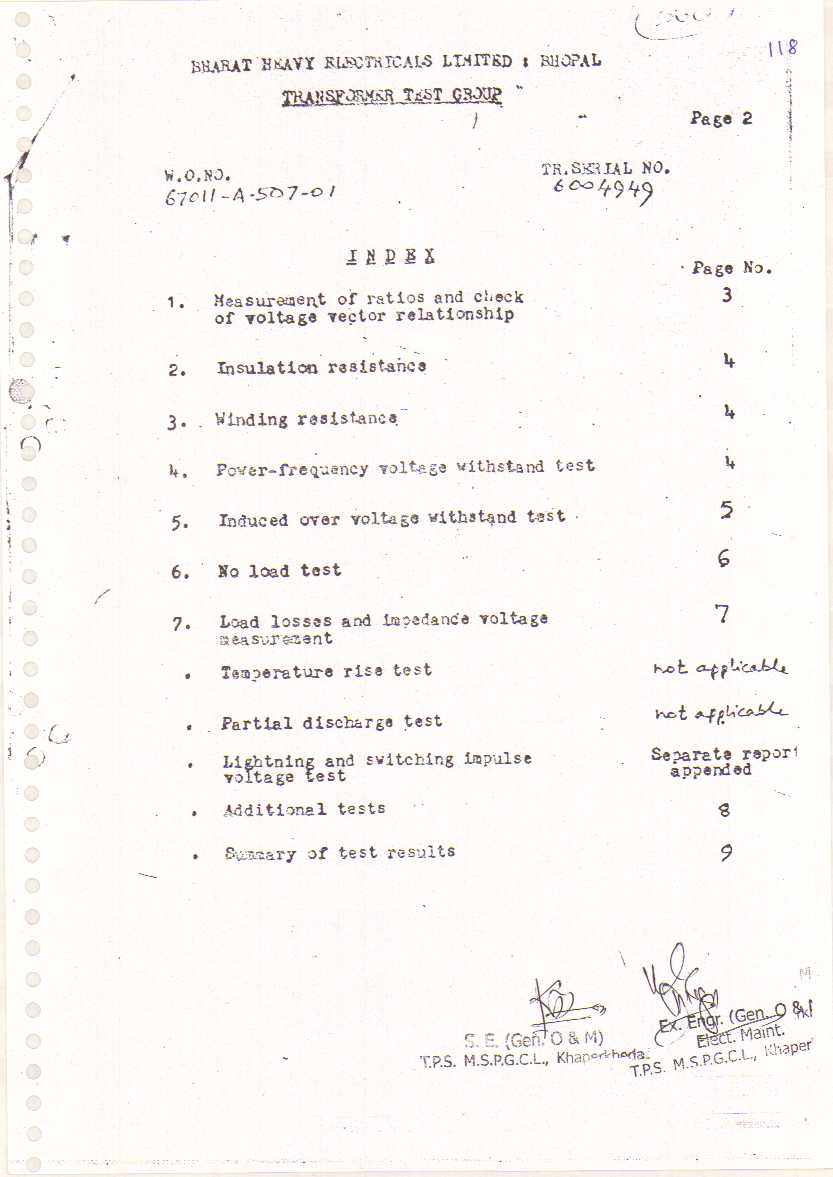 118
BHARAT HEAVY ELECTRICALS LIMITED : BHOPAL
TRANSFORMER TEST GROUP
Page 2
W.O.NO.
67011-A-507-01
TR.SERIAL NO.
6004949
INDEX
Page No.
1. Measurement of ratios and check 3
of voltage vector relationship
2. Insulation resistance 4
3. Winding resistance 4
4. Power-frequency voltage withstand test 4
5. Induced over voltage withstand test 5
6. No load test 6
7. Load losses and impedance voltage 7
measurement
. Temperature rise test not applicable
. Partial discharge test not applicable
. Lightning and switching impulse Separate report
voltage test appended
. Additional tests 8
. Summary of test results 9
S. E. (Gen. O & M)
T.P.S. M.S.P.G.C.L., Khaperkheda.
Ex. Engr. (Gen. O &
Elect. Maint.
T.P.S. M.S.P.G.C.L., Khaper